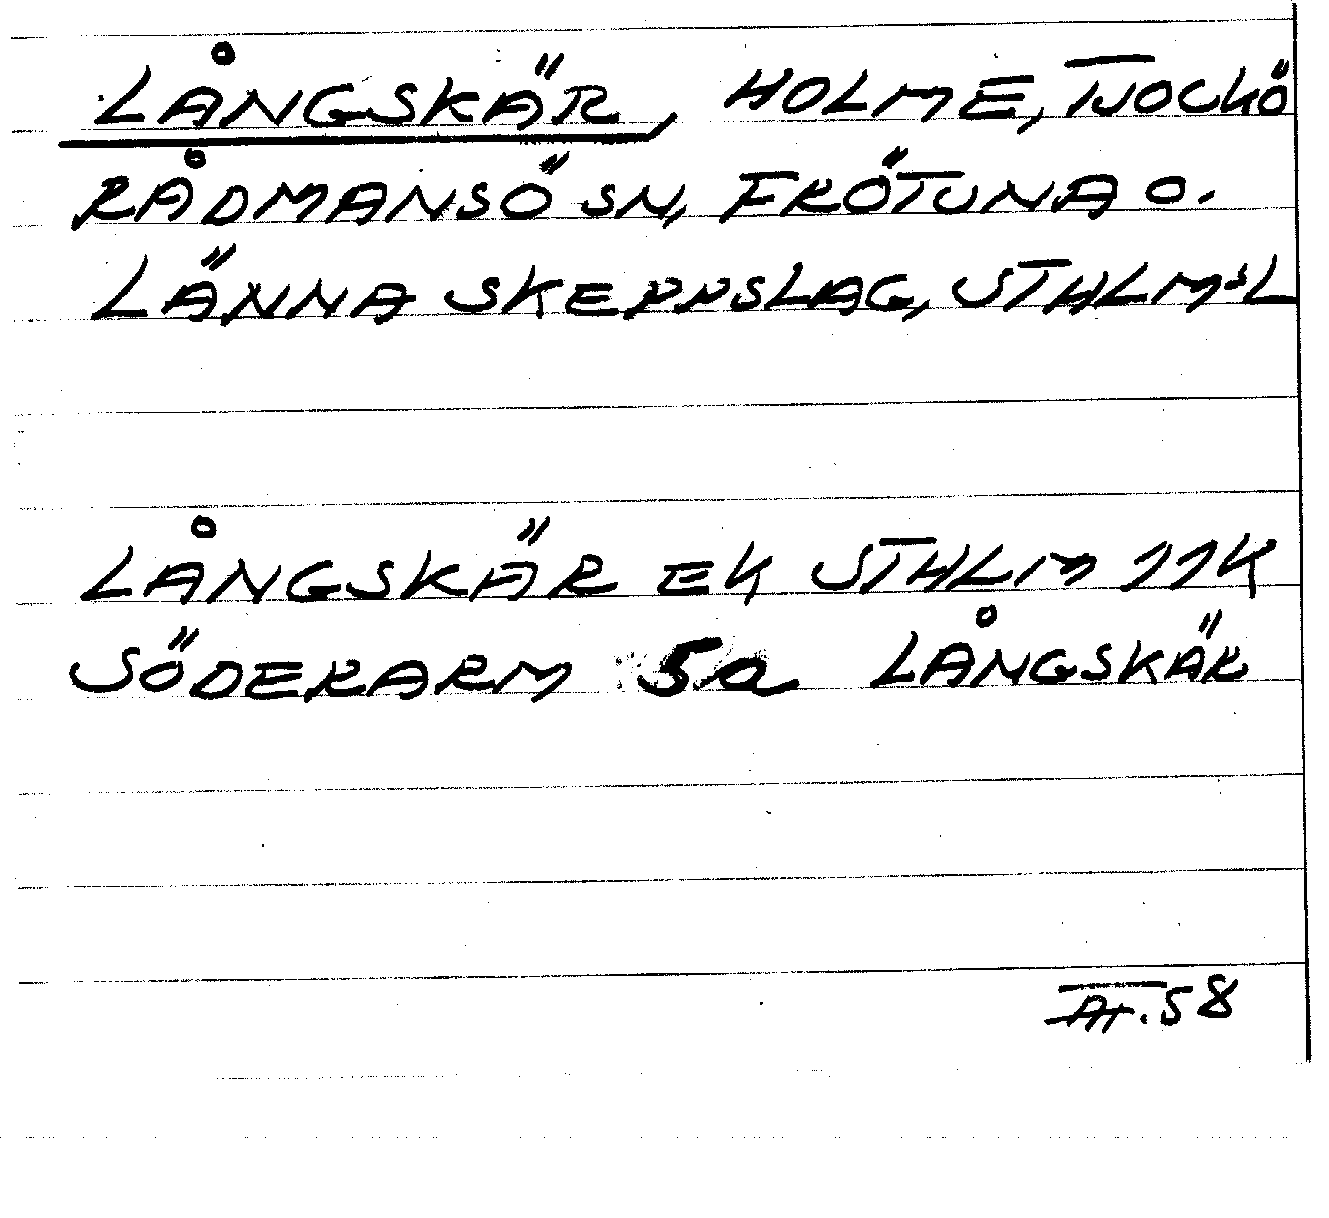 LÅNGSKÄR, HOLME, TJOCKÖ
RÅDMANSÖ SN, FRÖTUNA O.
LÄNNA SKEPPSLAG, STHLMSL
LÅNGSKÄR EK STHLM 11K
SÖDERARM 5a LÅNGSKÄR
58